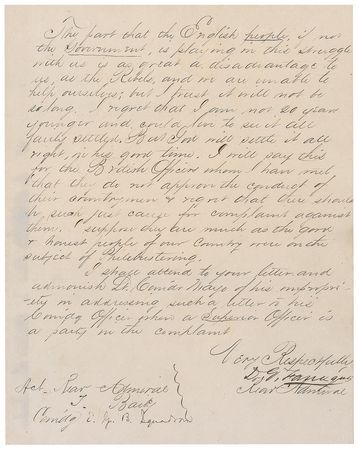 The part that the English people, if not
the Government, is playing in this struggle
with us is as great a disadvantage to
us, as the Rebels, and we are unable to
help ourselves; but I trust it will not be
so long. I regret that I am not 20 years
younger and could live to see it all
fairly settled. But God will settle it all
right, in his good time. I will say this
for the British Officers whom I have met,
that they do not approve the conduct of
their Countrymen & regret that there should
be such just cause for complaint against
them. I suppose they are much as the good
& honest people of our Country were on the
subject of Philibustering.
I shall attend to your letter and
admonish Lt. Comdr Mayo of his impropri-
ety in addressing such a letter to his
Comdg Officer when a Superior Officer is
a party in the complaint
Very Respectfully
D. G. Farragut
Rear Admiral
Act. Rear Admiral
T. Bailey
Comdg E. G. B. Squadron